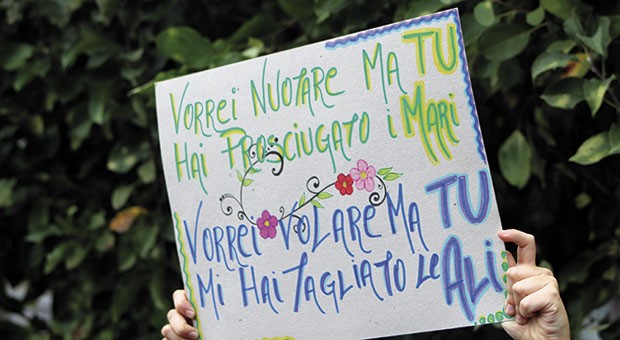 VORREI NUOTARE MA TU
HAI PROSCIUGATO i MARI
VORREI VOLARE MA TU
Mi HAI TAGLIATO LE ALI